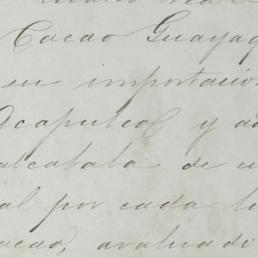 Cacao Guayaq
su importacio
Acapulco y ad
alcabala de
al por cada li
acao, avaluad